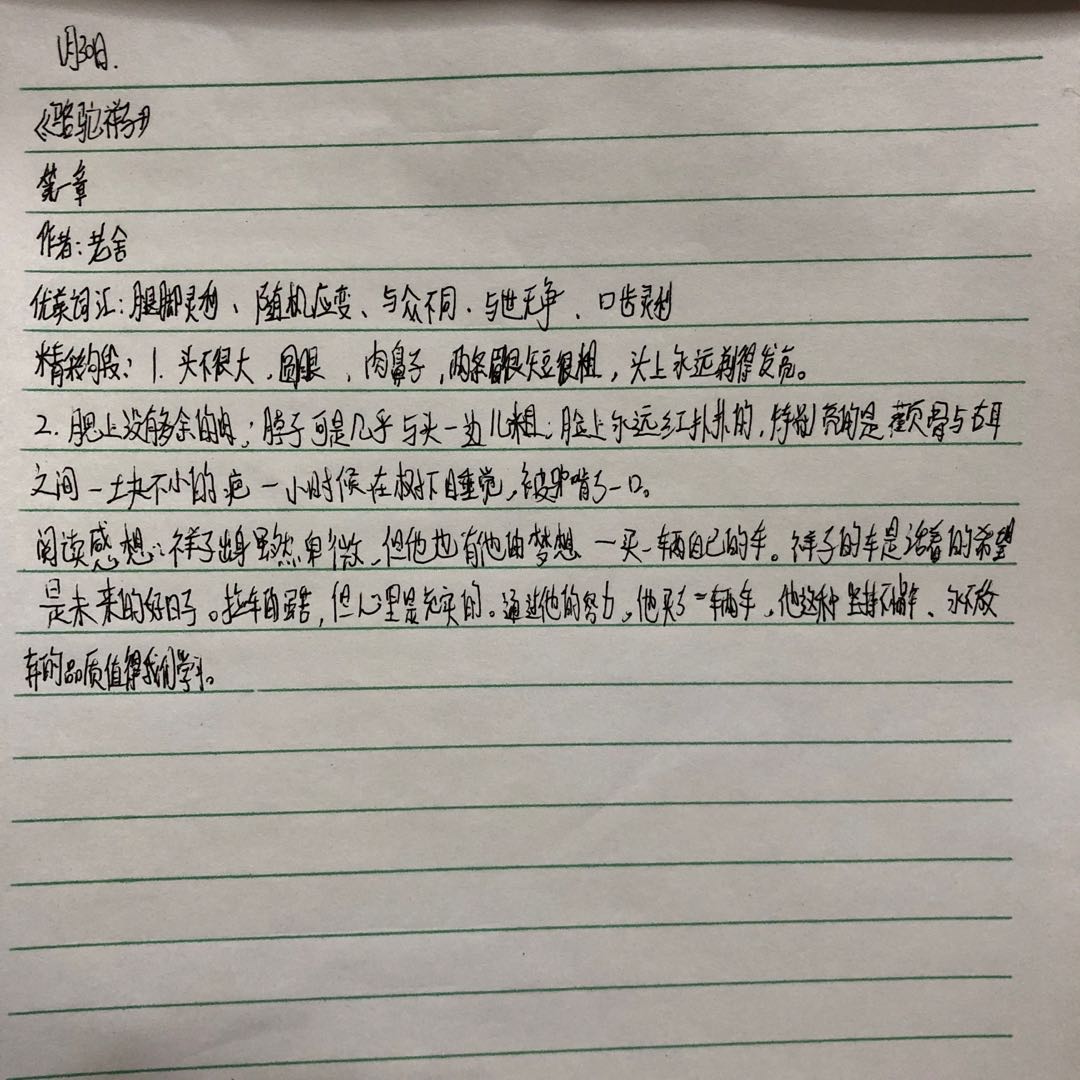 1月30日.
《骆驼祥子》
第一章
作者:老舍
优美词汇:腿脚灵利、随机应变、与众不同、与世无争、口齿灵利
精彩句段:1.头不很大,圆眼,肉鼻子,两条眉很短很粗,头上永远剃得发亮。
2.腮上没有多余的肉;脖子可是几乎与头一边儿粗;脸上永远红扑扑的,特别亮的是颧骨与右耳
之间一块不小的疤—小时候在树下睡觉,被驴啃了一口。
阅读感想:祥子出身虽然卑微,但他也有他的梦想—买一辆自己的车。祥子的车是活着的希望
是未来的好日子。拉车虽苦,但心里是充实的。通过他的努力,他买了一辆车,他这种坚持不懈、永不放
弃的品质值得我们学习。